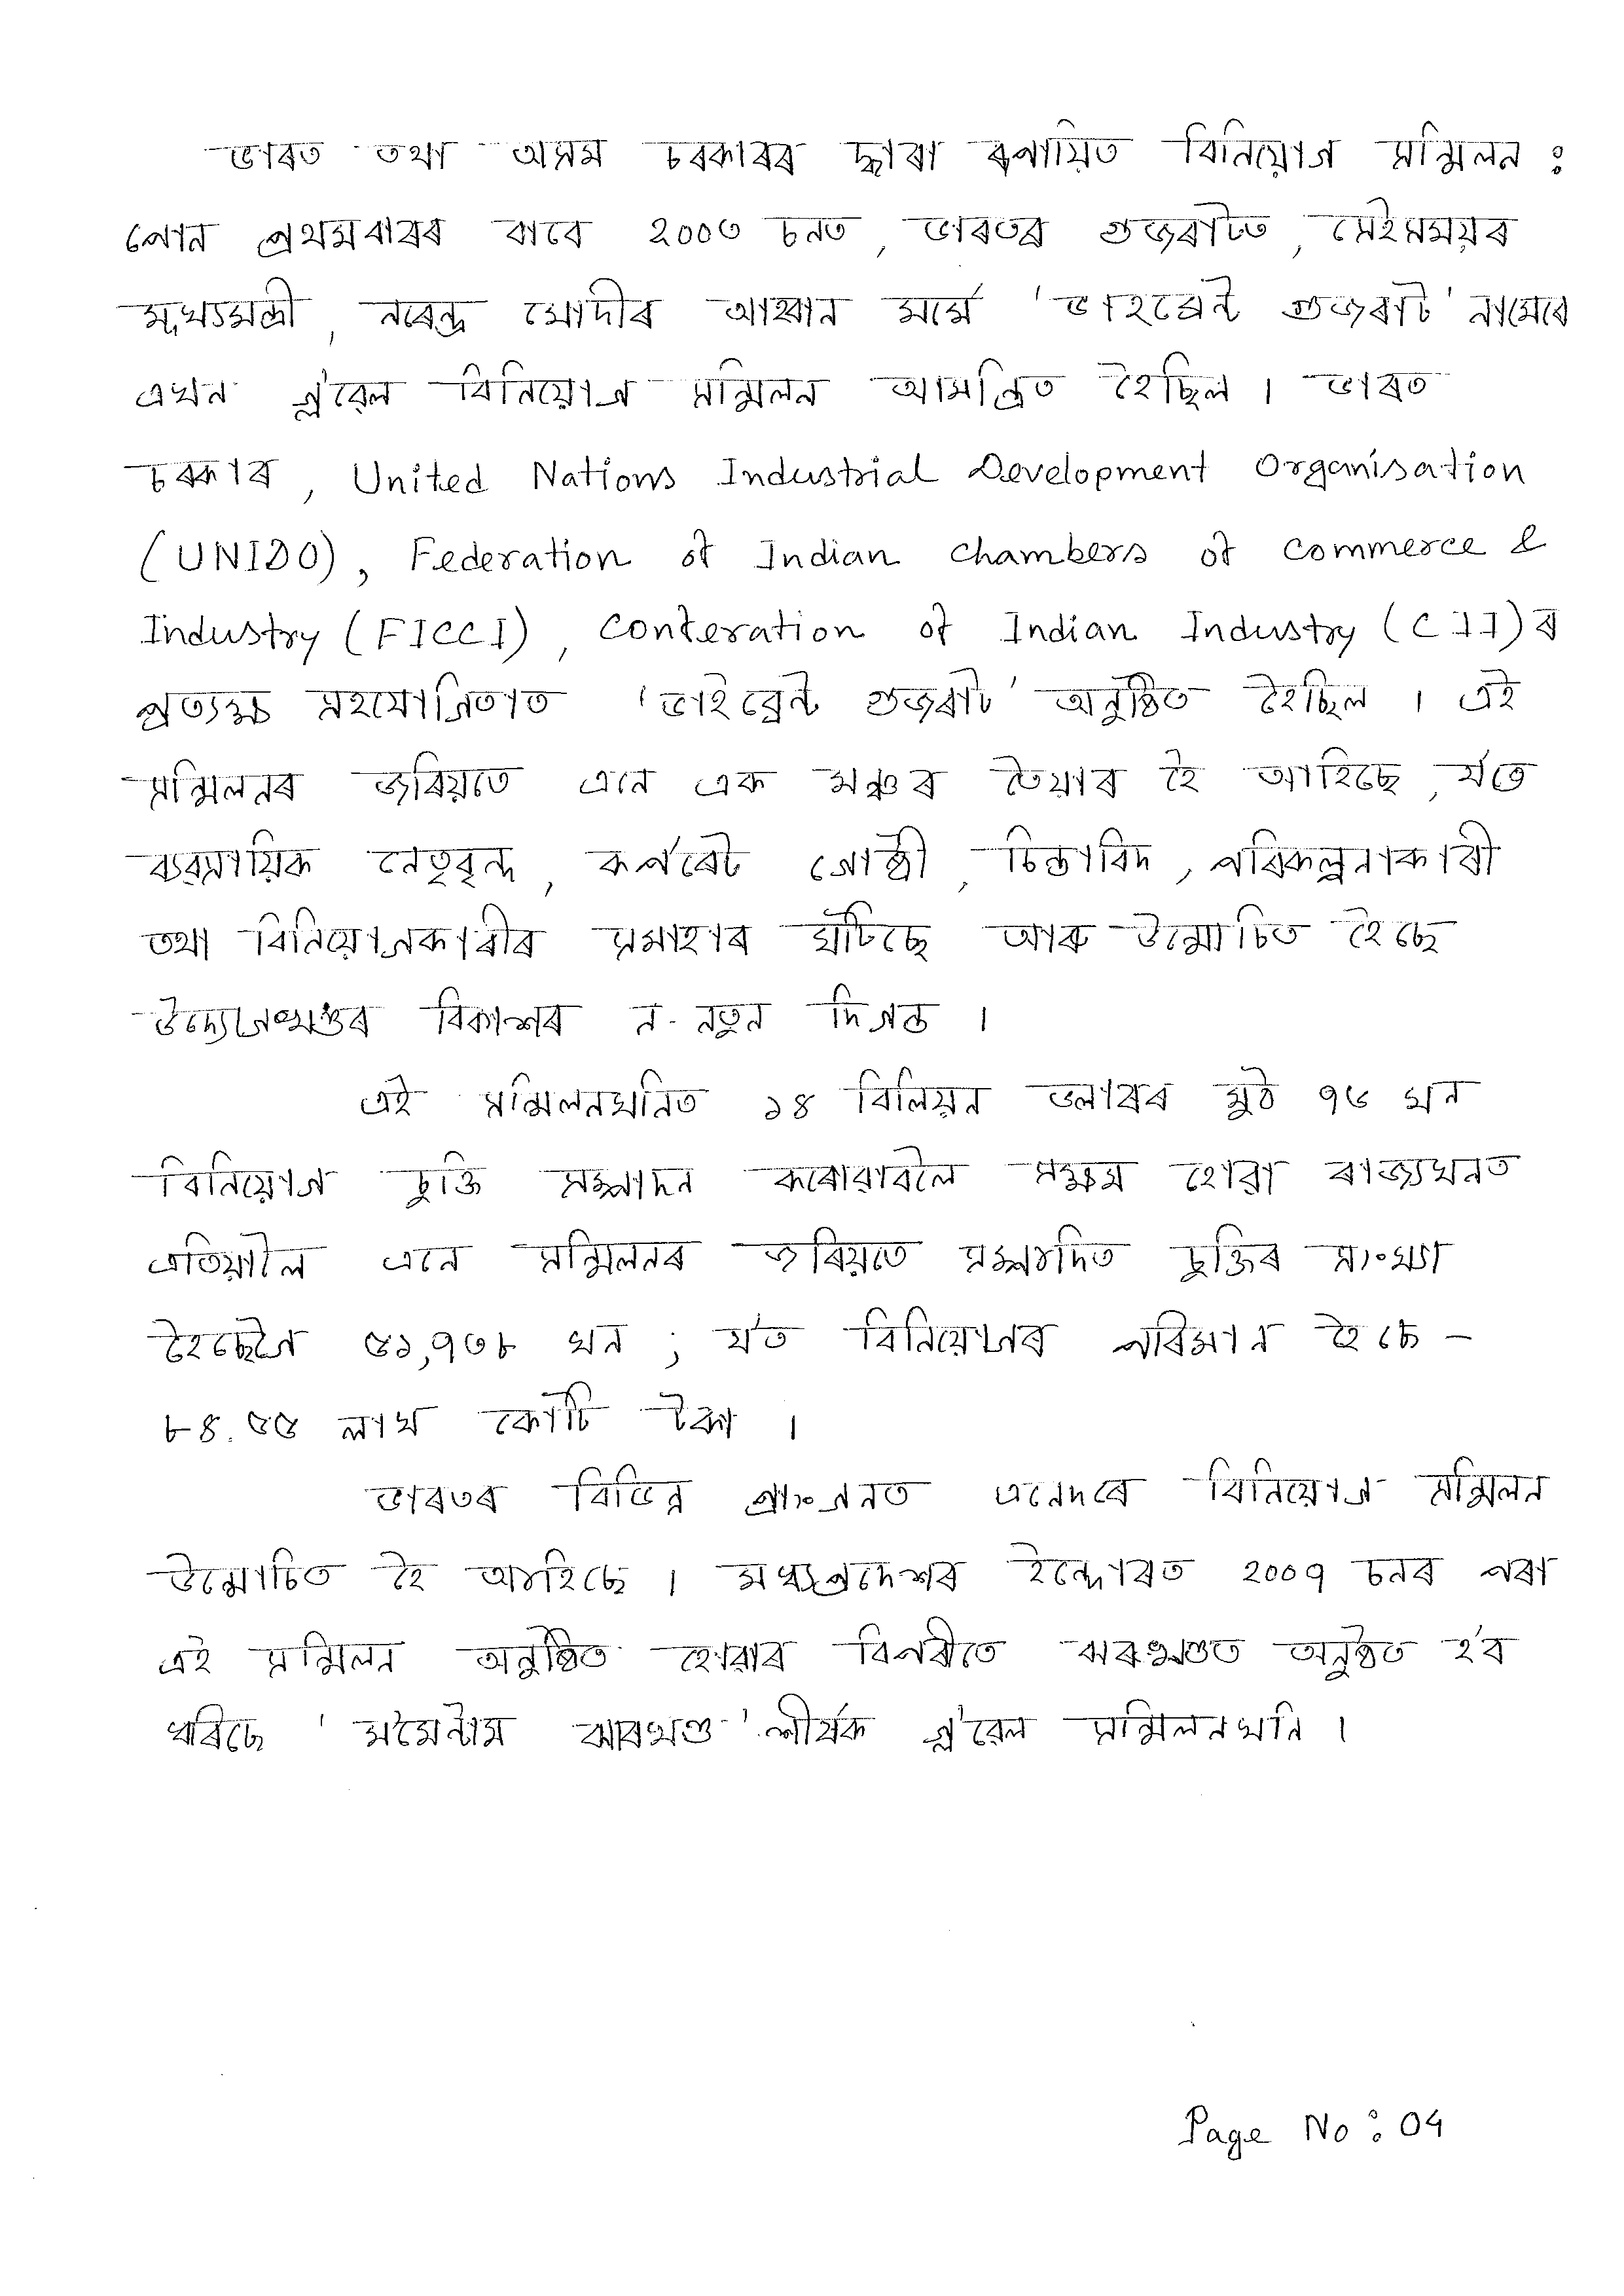 ভাৰত তথা অসম চৰকাৰৰ দ্বাৰা ৰূপায়িত বিনিয়োগ সন্মিলন :
পোন প্ৰথমবাৰৰ বাবে ২০০৩ চনত , ভাৰতৰ গুজৰাটত , সেইসময়ৰ
মূখ্যমন্ত্ৰী , নৰেন্দ্ৰ মোদীৰ আহ্বান মৰ্মে ' ভাইব্ৰেন্ট গুজৰাট ' নামেৰে
এখন গ্ল'বেল বিনিয়োগ সন্মিলন আমন্ত্ৰিত হৈছিল । ভাৰত
চৰকাৰ , United Nations Industrial Development Organisation
(UNIDO) , Federation of Indian chambers of commerce &
Industry (FICCI) , conferation of Indian Industry (CII)ৰ
প্ৰত্যক্ষ সহযোগিতাত ' ভাইব্ৰেন্ট গুজৰাট ' অনুষ্ঠিত হৈছিল । এই
সন্মিলনৰ জৰিয়তে এনে এক মঞ্চৰ তৈয়াৰ হৈ আহিছে , য'তে
ব্যৱসায়িক নেতৃবৃন্দ , কৰ্পৰেট গোষ্ঠী , চিন্তাবিদ , পৰিকল্পনাকাৰী
তথা বিনিয়োগকাৰীৰ সমাহাৰ ঘটিছে আৰু উন্মোচিত হৈছে
উদ্যোগখণ্ডৰ বিকাশৰ ন-নতুন দিগন্ত ।
এই সন্মিলনখনিত ১৪ বিলিয়ন ডলাৰৰ মুঠ ৭৬ খন
বিনিয়োগ চুক্তি সম্পাদন কৰোৱাবলৈ সক্ষম হোৱা ৰাজ্যখনত
এতিয়ালৈ এনে সন্মিলনৰ জৰিয়তে সম্পাদিত চুক্তিৰ সাংখ্যা
হৈছেগৈ ৫১,৭৩৮ খন ; য'ত বিনিয়োগৰ পৰিমান হৈছে –
৮৪.৫৫ লাখ কোটি টকা ।
ভাৰতৰ বিভিন্ন প্ৰাংগনত এনেদৰে বিনিয়োগ সন্মিলন
উন্মোচিত হৈ আহিছে । মধ্যপ্ৰদেশৰ ইন্দোৰত ২০০৭ চনৰ পৰা
এই সন্মিলন অনুষ্ঠিত হোৱাৰ বিপৰীতে ঝাৰখণ্ডত অনুষ্ঠিত হ'ব
ধৰিছে ' মমেন্টাম ঝাৰখণ্ড ' শীৰ্ষক গ্ল'বেল সন্মিলনখনি ।
Page No : 04